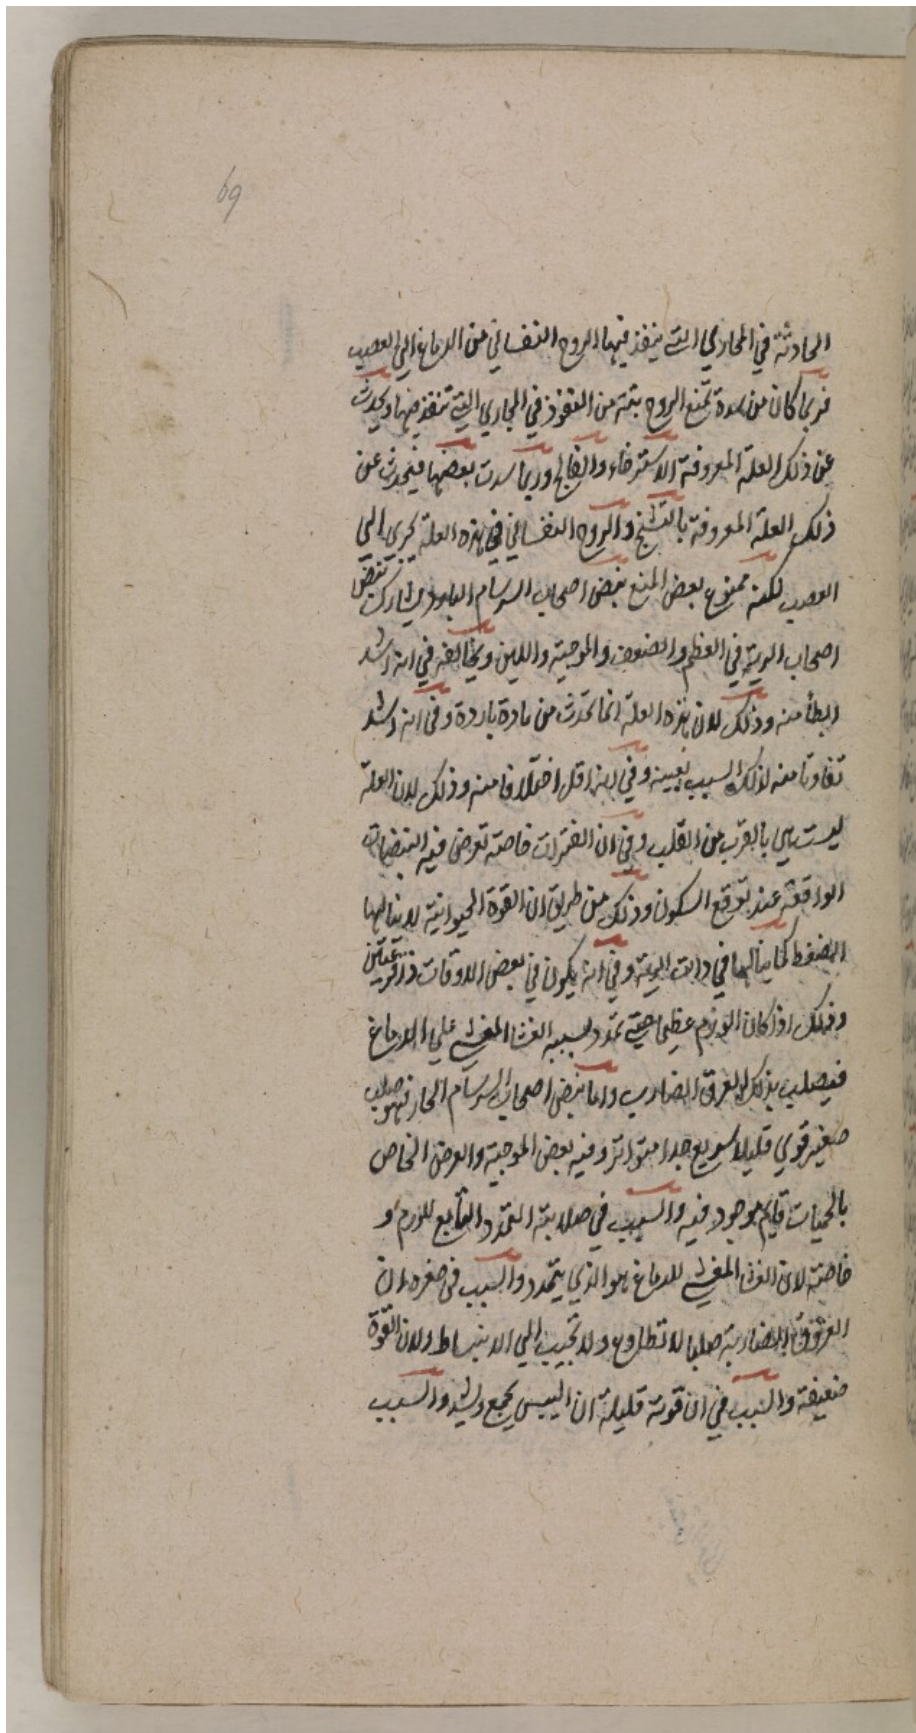 69
الحادثة في المجاري التي ينفذ فيها الروح النفساني من الدماغ الي العصب
فربما كان من سدة تمنع الروح بتة من النفوذ في المجاري التي تنفذ فيها ويحدث
عن ذلك العلة المعروفة الاسترخاء والفالج وربما سدت بعضها فيحدث عن
ذلك العلة المعروفة بالتشنج والروح النفساني في هذه العلة يجري الي
العصب لكنه ممنوع بعض المنع نبض اصحاب السرسام البارد يشارك نبض
اصحاب الرية في العظم والضعف والموجية واللين ويخالفه في انه اشد
ابطأ منه وذلك لان هذه العلة انما تحدث من مادة باردة وفي انه اشد
تفاوتا منه لذلك السبب بعينه وفي انه اقل اختلافا منه وذلك لان العلة
ليست هي بالقرب من القلب وفي ان الفترات خاصته تعرض فيه النبضات
الواقعة عند توقع السكون وذلك من طريق ان القوة الحيوانية لا ينالها
الضغط كما ينالها في ذات الرية وفي انه يكون في بعض الاوقات ذا قرعتين
وذلك اذا كان الورم عظيما حتي تمدد بسببه الغشا المغشي علي الدماغ
فيصلب بذلك العرق الضارب واما نبض اصحاب السرسام الحار فهو صلب
صغير قوي قليلا سريع جدا متواتر وفيه بعض الموجية والعرض الخاص
بالحميات قايم موجود فيه والسبب في صلابته التمدد التابع للورم و
خاصته لان الغشا المغشي للدماغ هو الذي يتمدد والسبب في صغره ان
العروق الضاربة صلبا لا تطاوع ولا تجيب الي الانبساط ولان القوة
ضعيفة والسبب في ان قوته قليلة ان اليبس يجمع ويشد والسبب